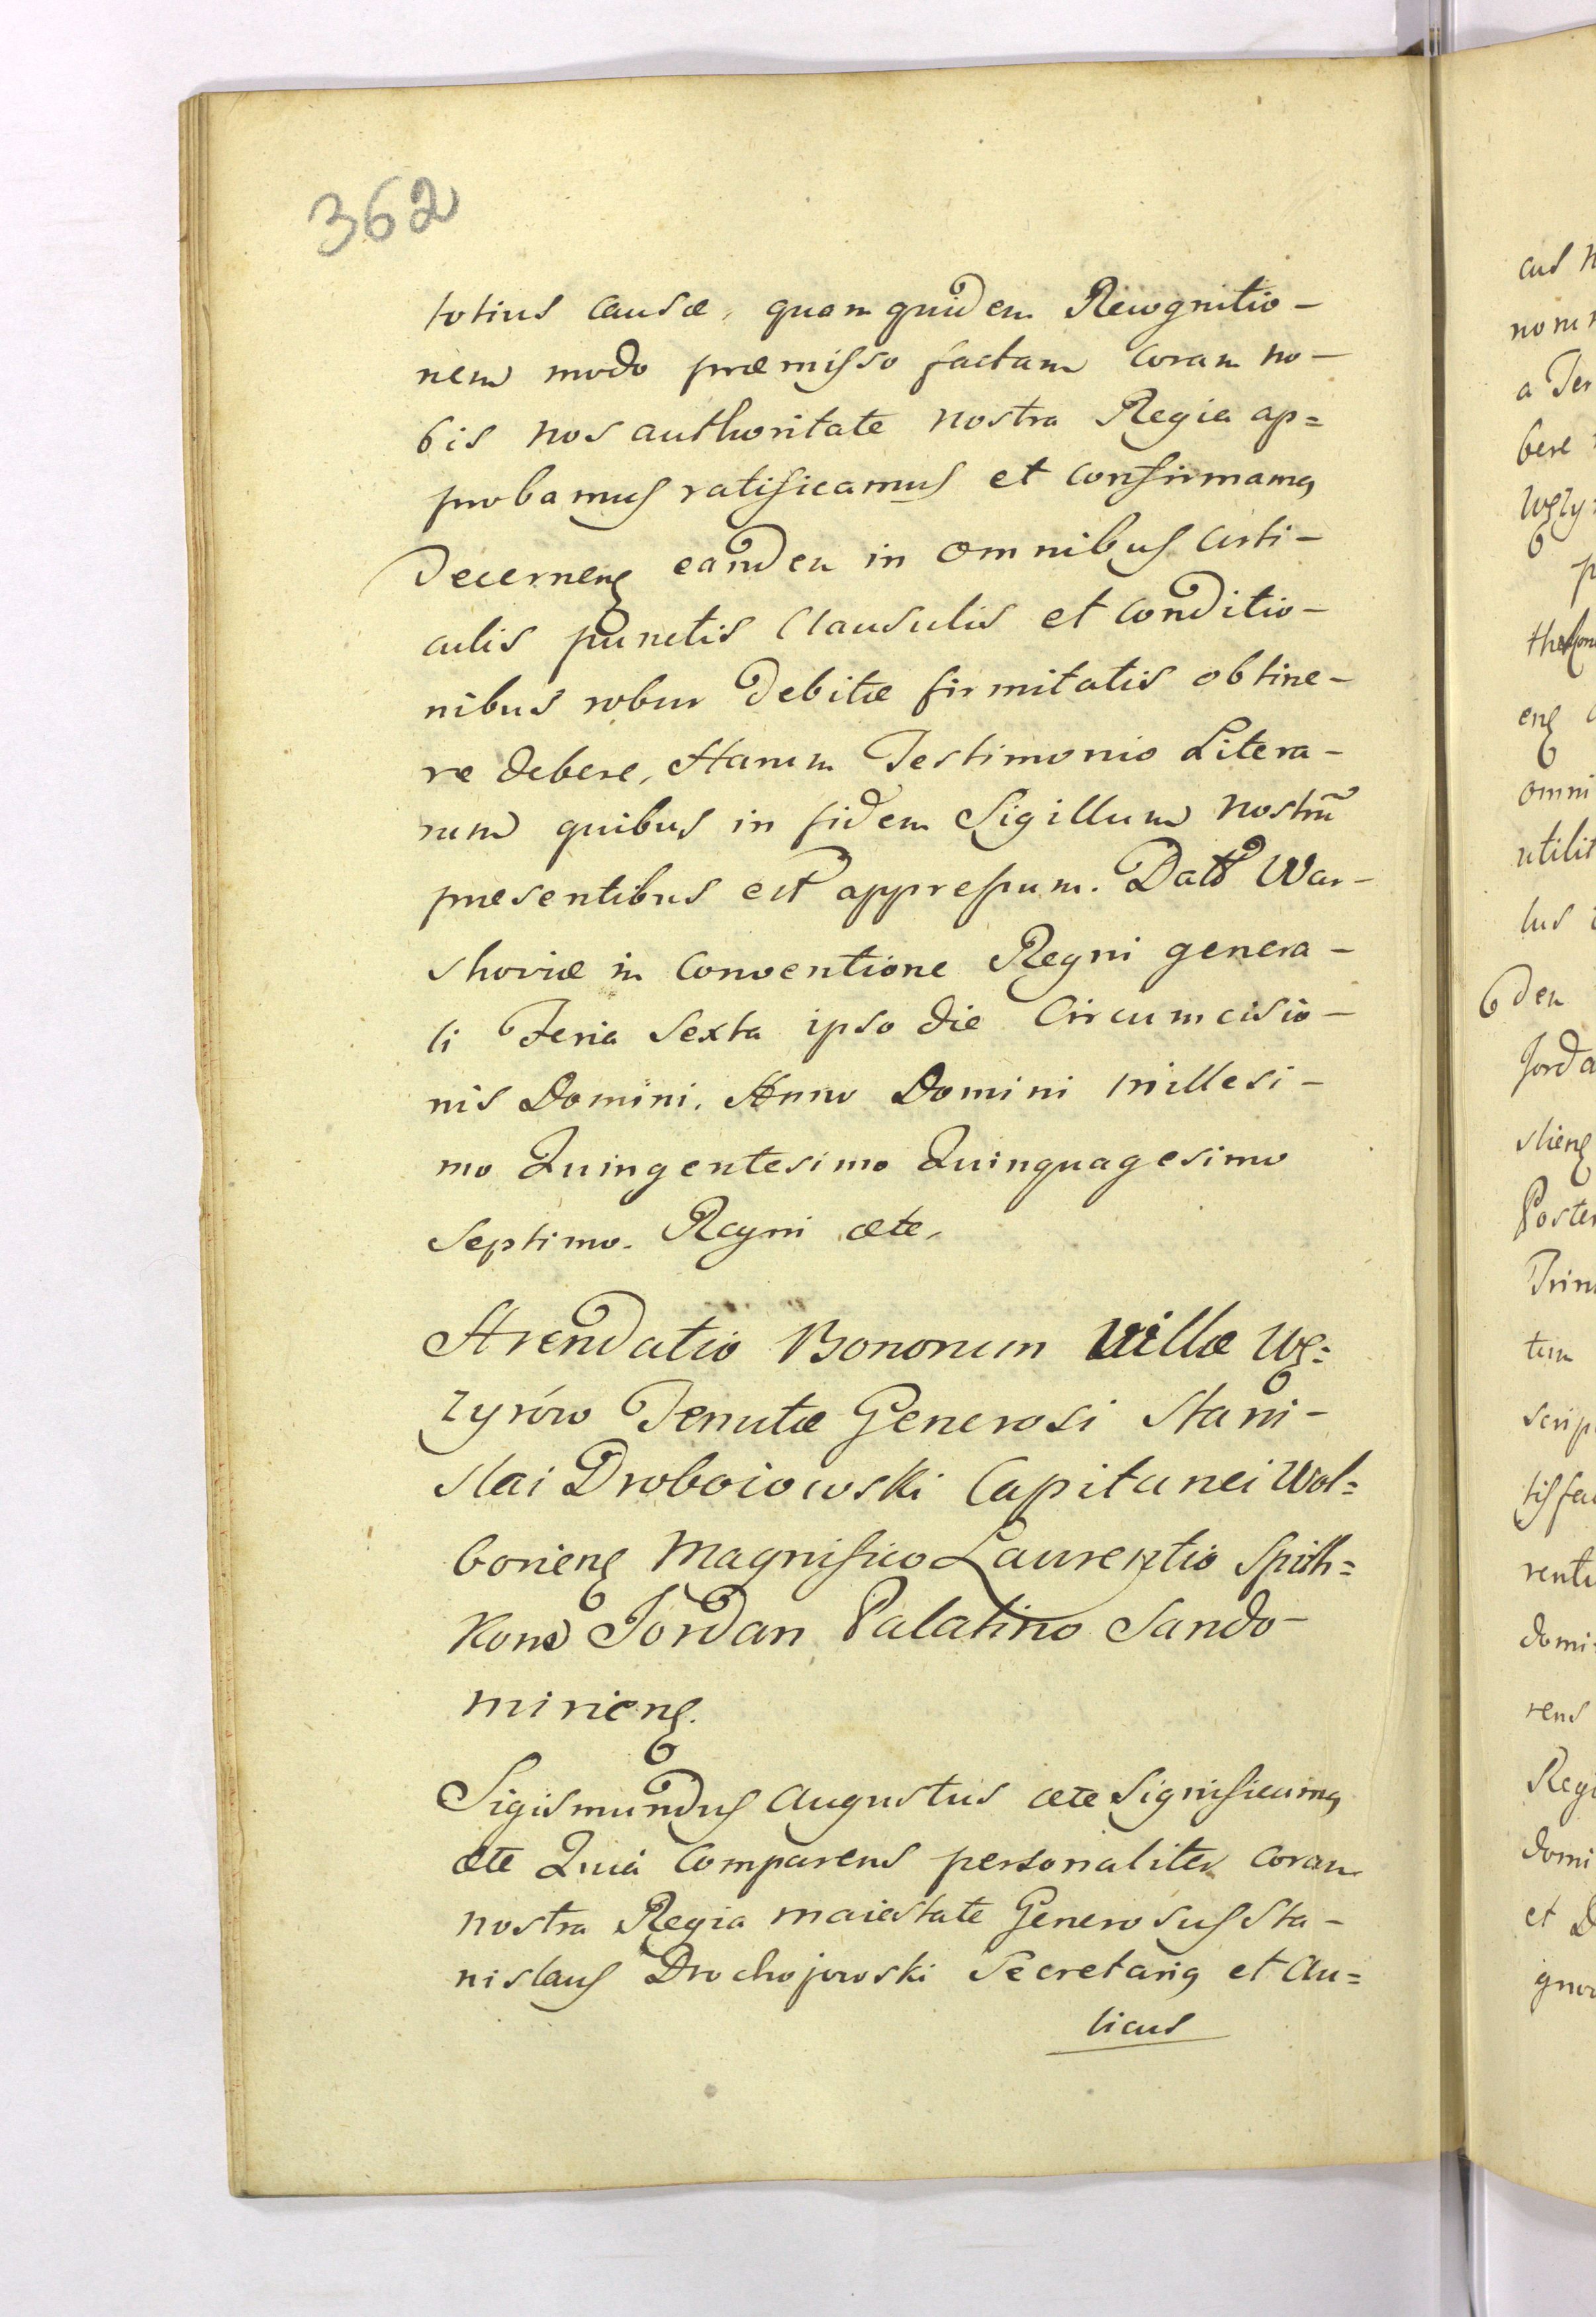 362
totius causæ, quam quidem Recognitio-
nem modo præmisso factam coram no-
bis nos authoritate nostra Regia ap=
probamus ratificamus et confirmamꝰ
Decernenꝭ eandem in omnibus arti-
culis punctis Clausulis et conditio-
nibus robur debitæ firmitatis obtine-
re debere, Harum Testimonio Litera-
rum quibus in fidem Sigillum nostrū
præsentibus est appressum. Datt War-
shoviæ in Conventione Regni genera-
li Feria Sexta ipso die Circumcisio-
nis Domini. Anno Domini Millesi-
mo Quingentesimo Quinquagesimo
Septimo. Regni ætc.
Arendatio Bonorum Villæ Wę=
zyrów Tenutæ Generosi Stani-
slai Droboiowski Capitanei Wol=
borienꝭ Magnifico Laurentio Spith=
kons Jordan Palatino Sando-
mirienꝭ.
Sigismundus Augustus ætc Significamꝰ
ætc Quia Comparens personaliter coram
nostra Regia maiestate Generosus Sta-
nislaus Drochojowski Secretariꝰ et Au=
licus
cus
a Ter
bere
omni
utilit
lus
dem
Jorda
Poste
scrip
domi
rens
Regi
domi
et D